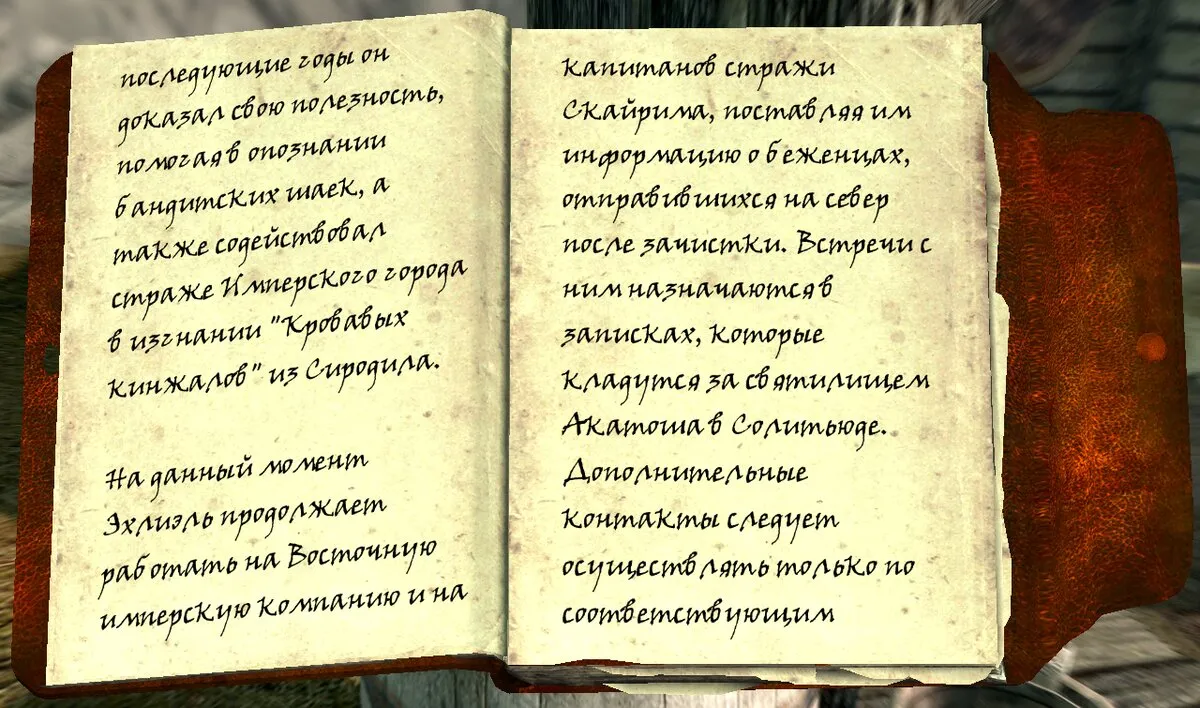 последующие годы он
доказал свою полезность,
помогая в опознании
бандитских шаек, а
также содействовал
страже Имперского города
в изгнании "Кровавых
кинжалов" из Сиродила.
На данный момент
Эхлиэль продолжает
работать на Восточную
имперскую компанию и на
капитанов стражи
Скайрима, поставляя им
информацию о беженцах,
отправившихся на север
после зачистки. Встречи с
ним назначаются в
записках, которые
кладутся за святилищем
Акатоша в Солитьюде.
Дополнительные
контакты следует
осуществлять только по
соответствующим